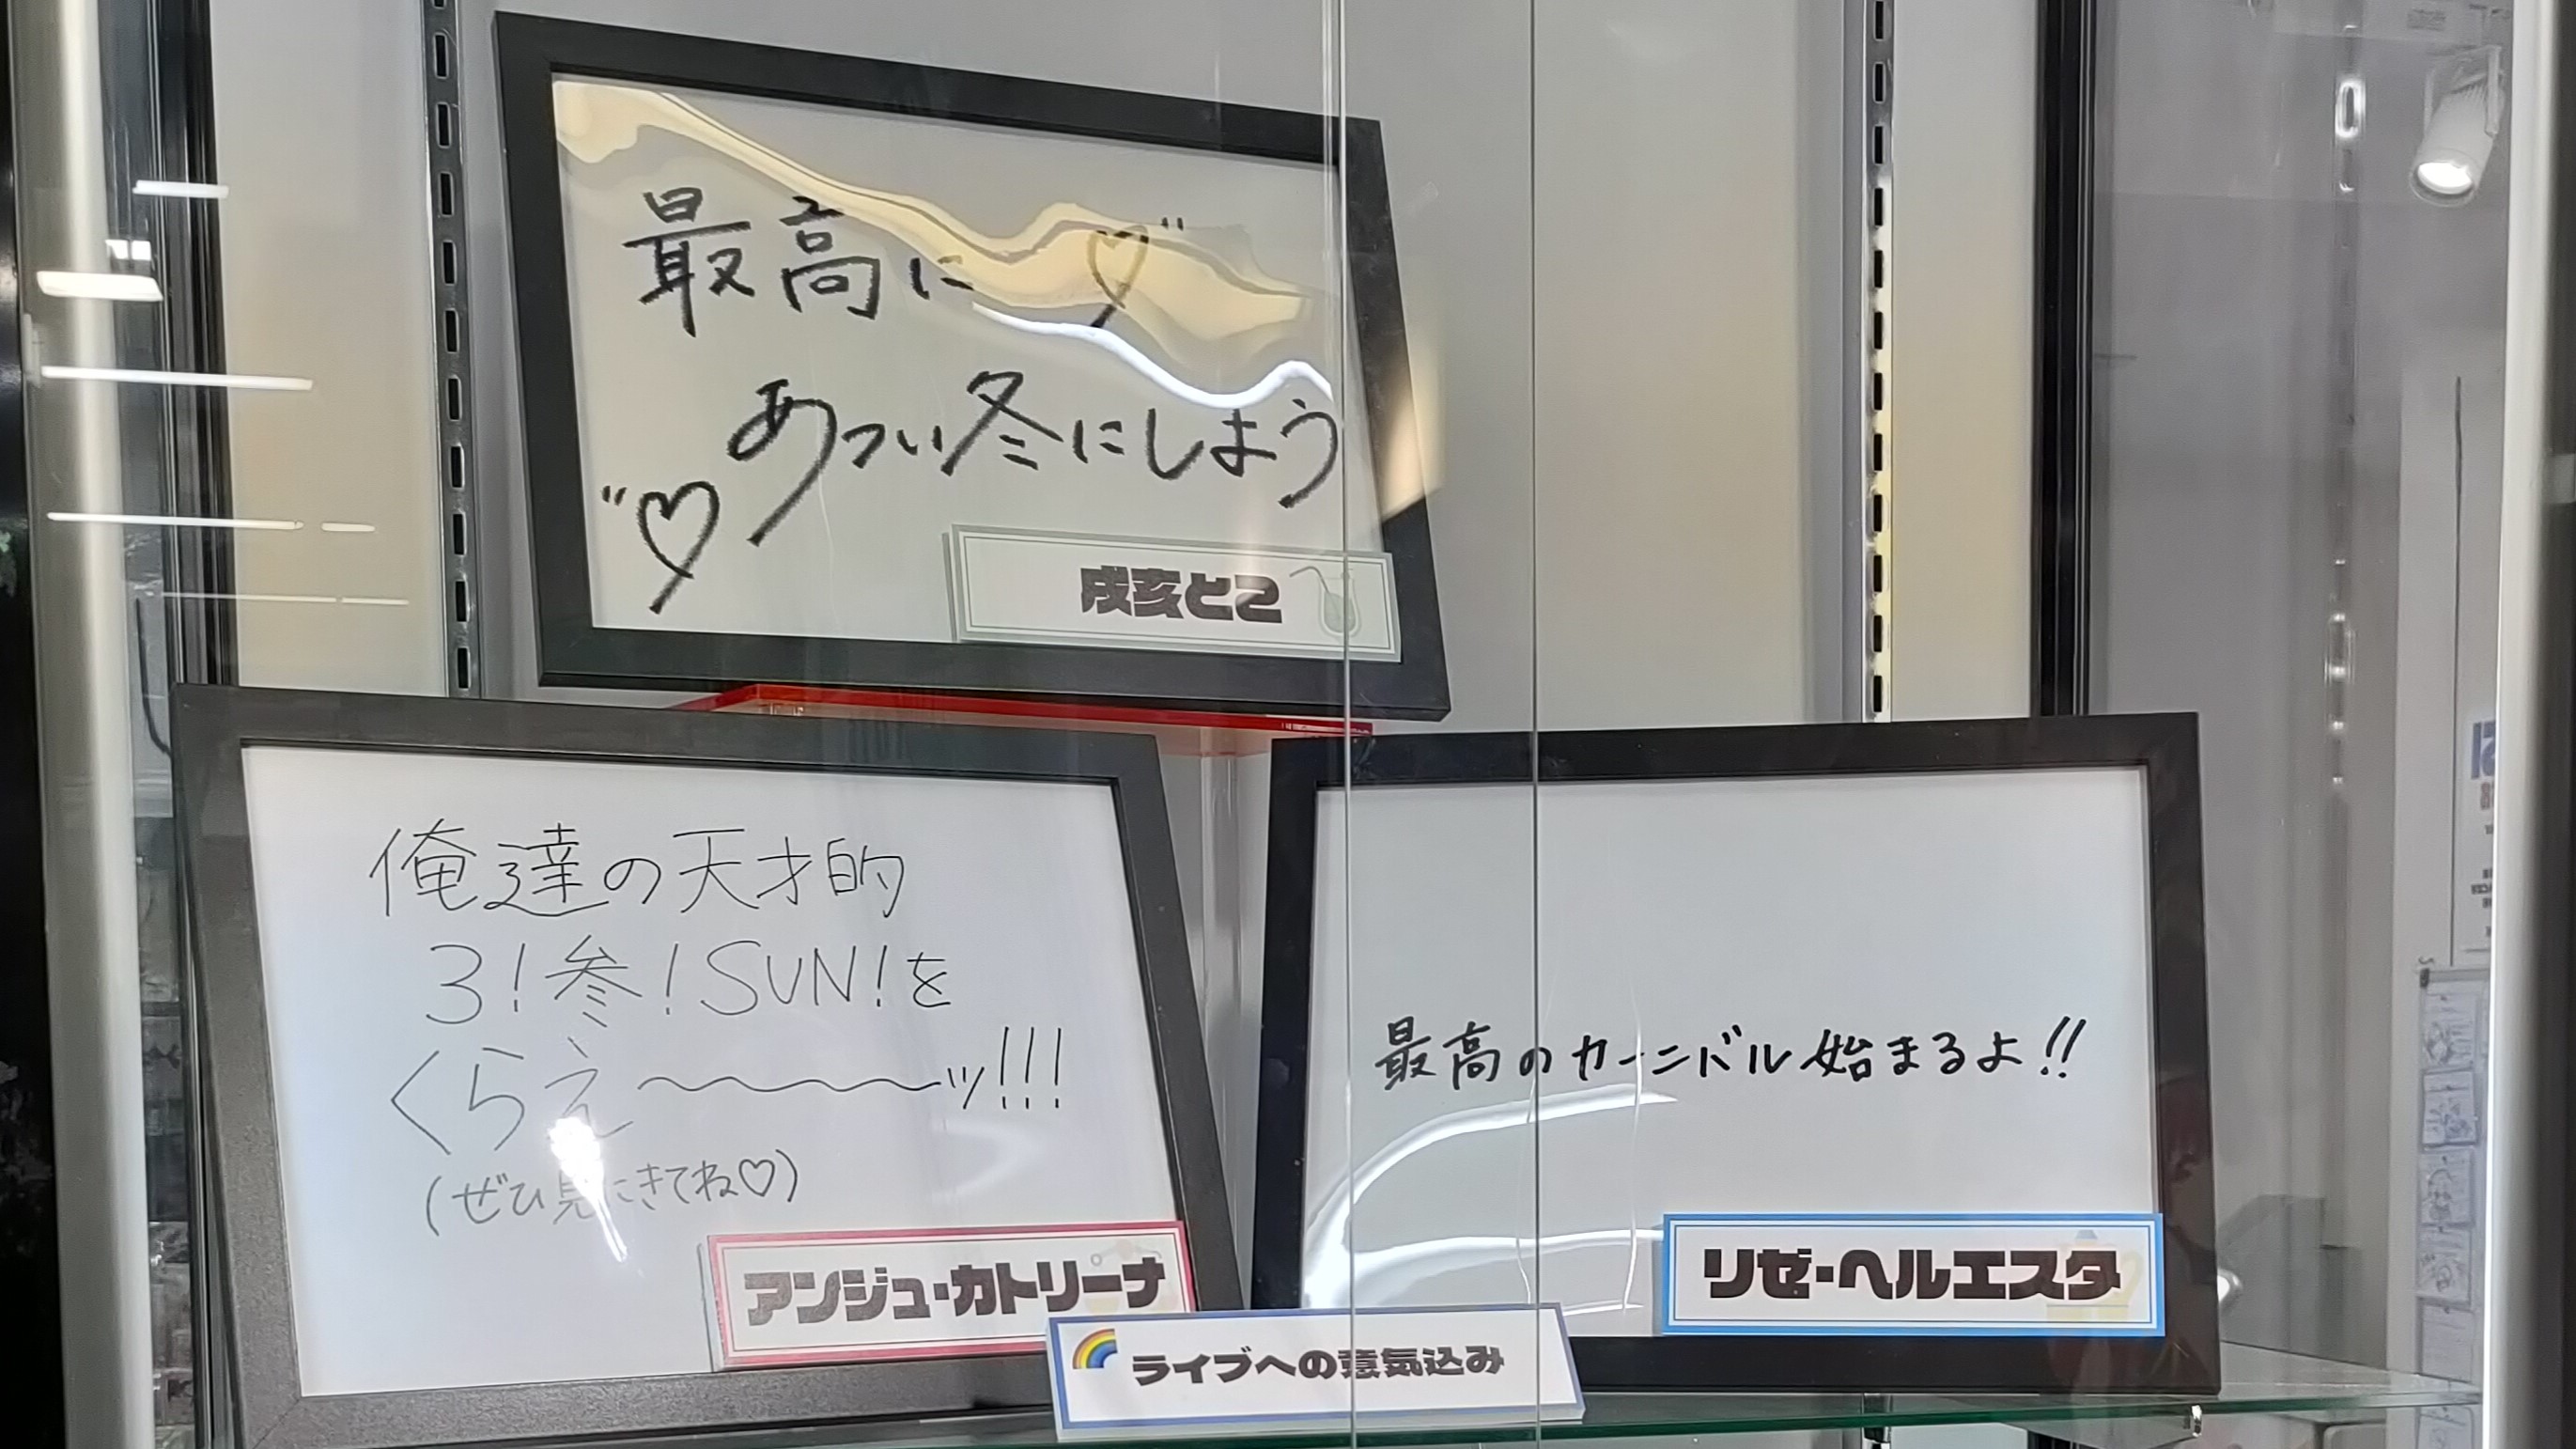 最高に♡"
あつい冬にしよう
"♡
戌亥とこ
俺達の天才的
3!参!SUN!を
くらえ〜〜〜〜ッ!!!
(ぜひ見にきてね♡)
アンジュ・カトリーナ
最高のカーニバル始まるよ!!
リゼ・ヘルエスタ
ライブへの意気込み